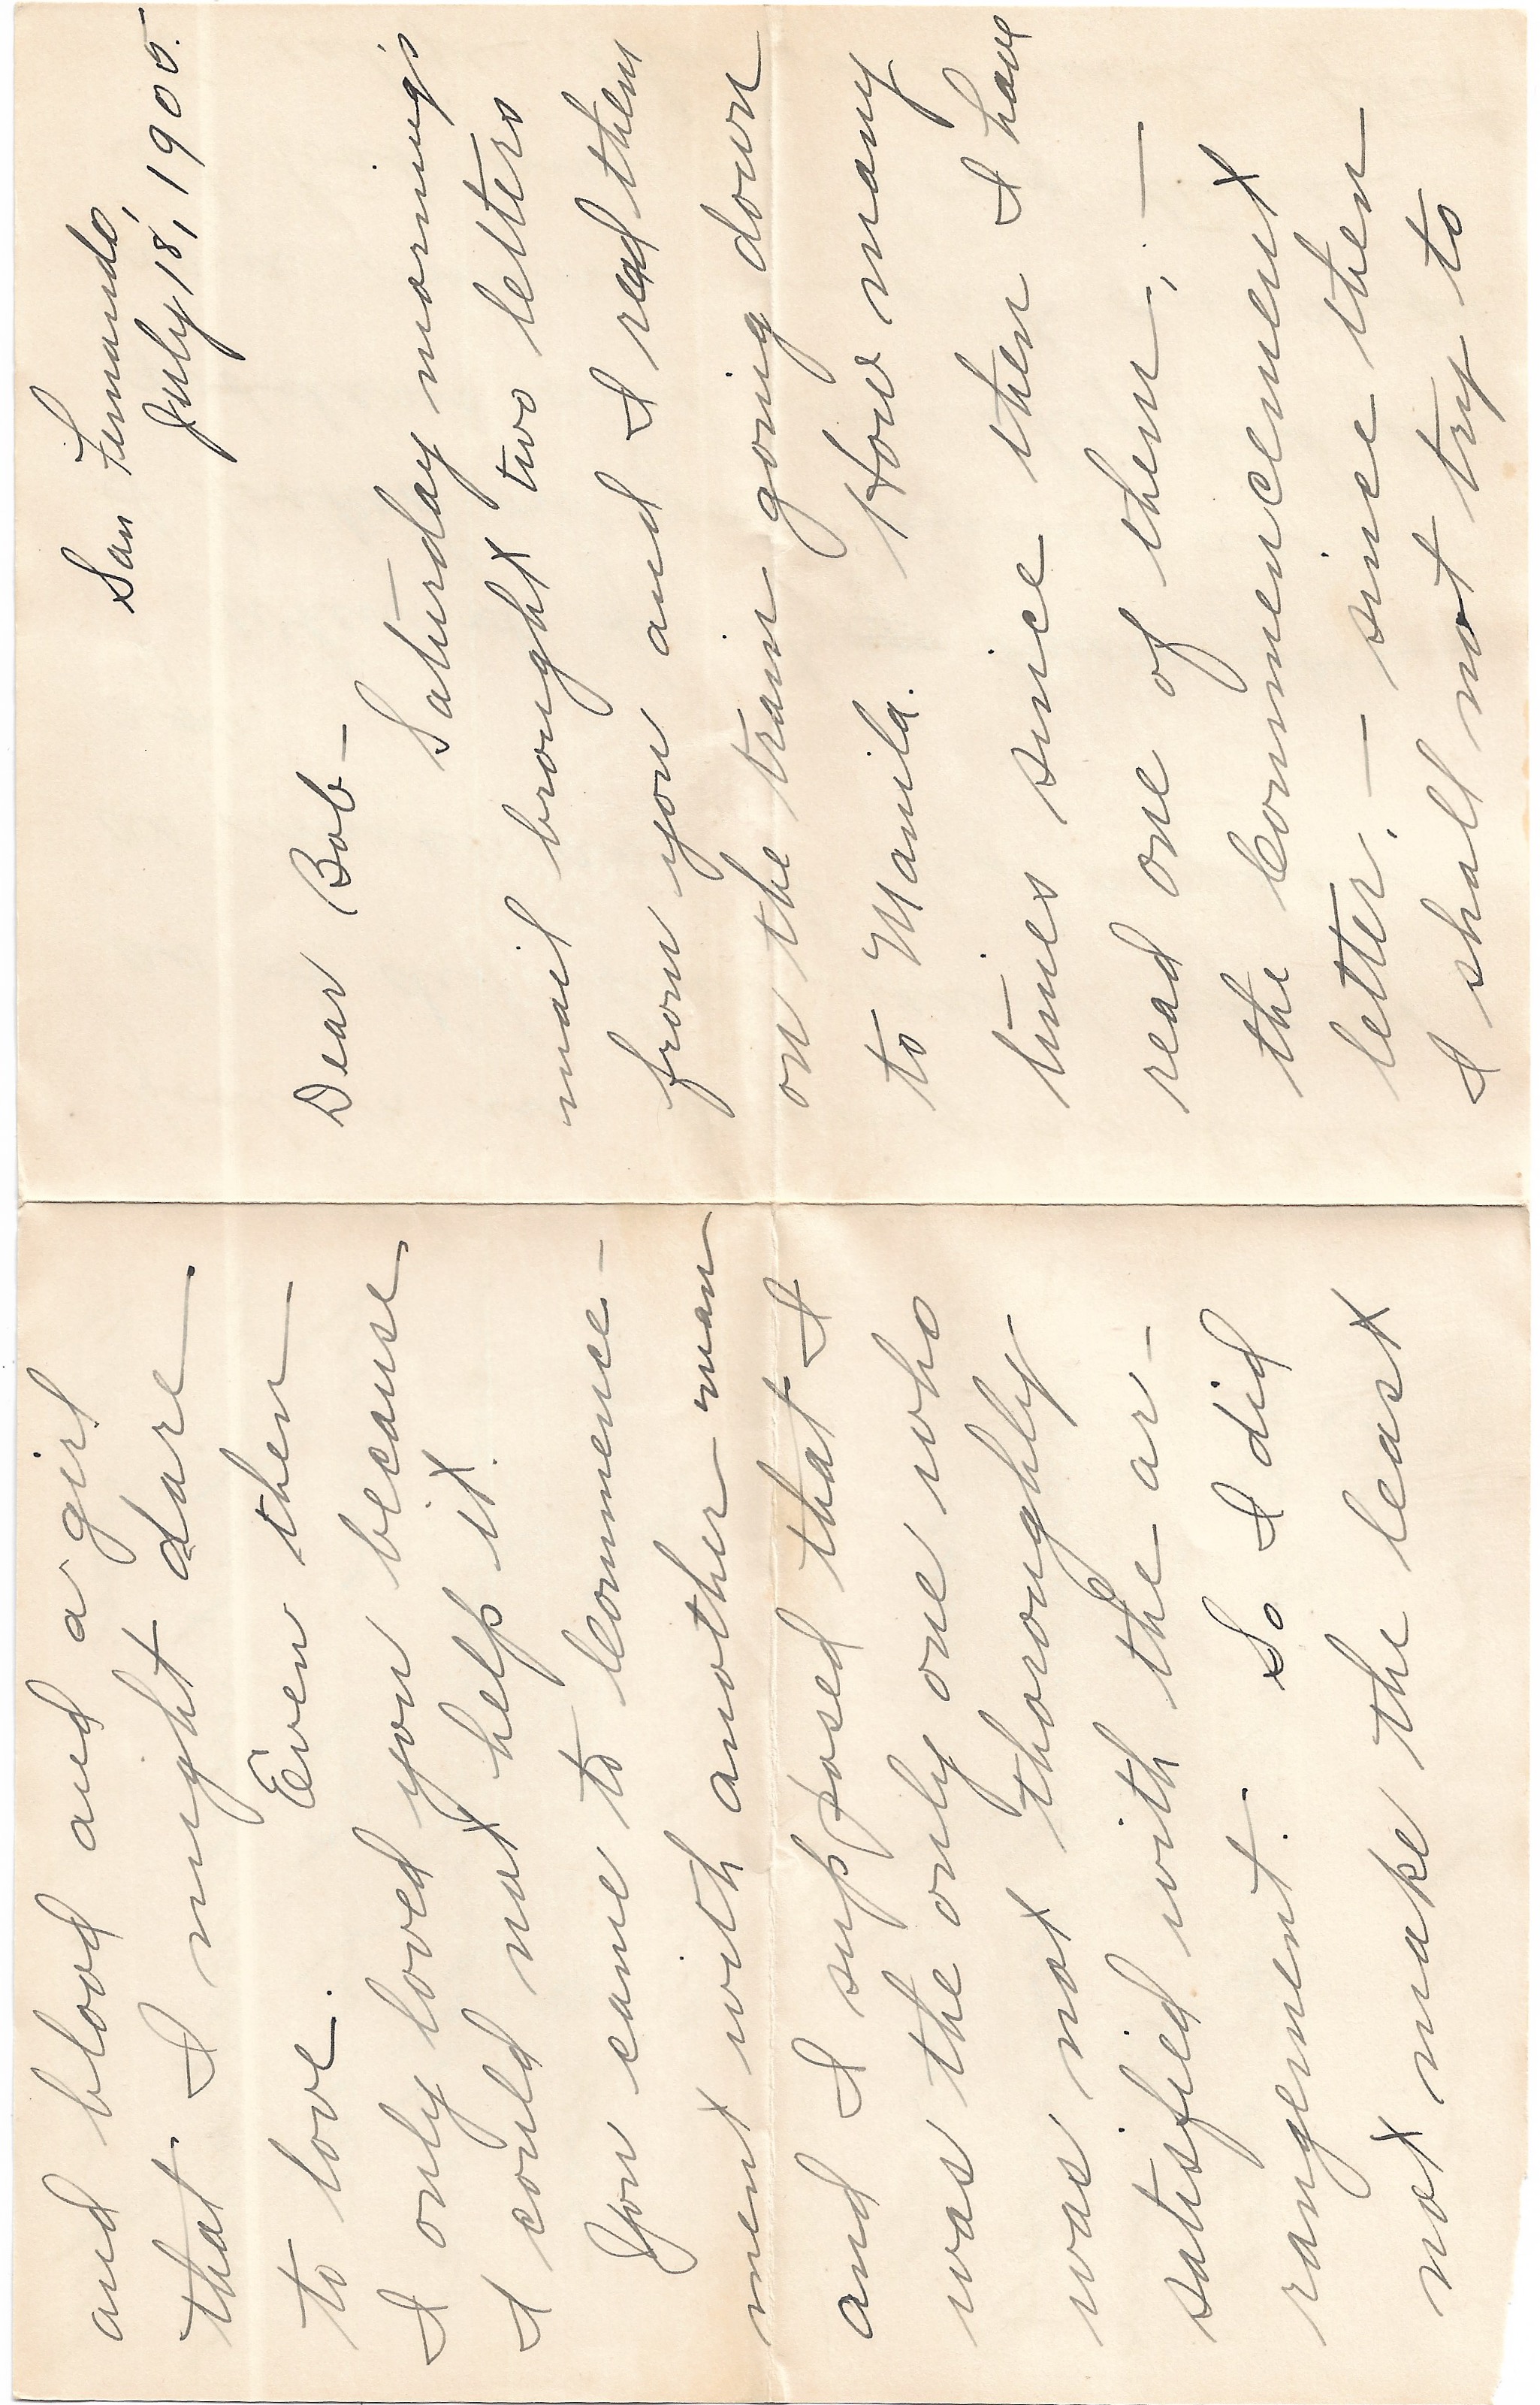 San Fernando,
July 18, 1905.
Dear Bob —
Saturday morning's
mail brought two letters
from you and I read them
on the train going down
to Manila. How many
times since then I have
read one of them; —
the Commencement
letter; — since then
I shall not try to
and blood and a girl
that I might dare
to love. Even then
I only loved you because
I could not help it.
You came to Commence-
ment with another man
and I supposed that I
was the only one who
was not thoroughly
satisfied with the ar-
rangement. So I did
not make the least